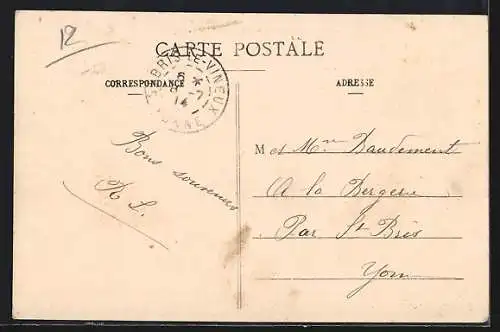 12
CARTE POSTALE
CORRESPONDANCE
ADRESSE
St BRIS-LE-VINEUX
YONNE
Bons souvenirs
R L.
M et Mme Daudement
A la Bergerie
Par St Bris
Yonne